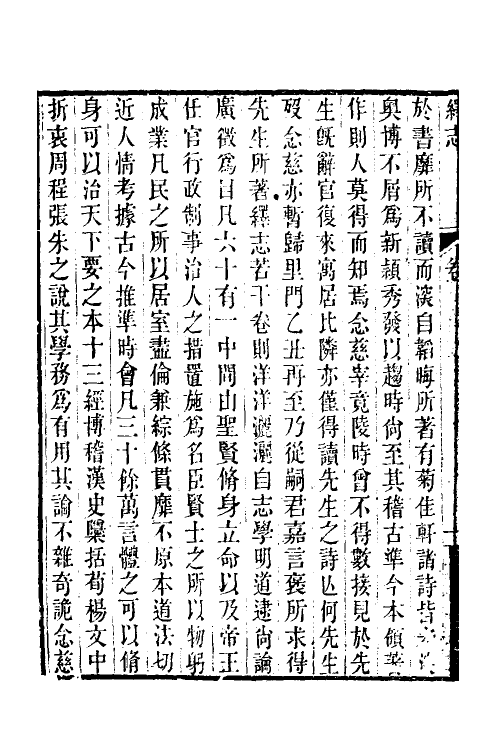 繹志
卷
於書靡所不讀而深自韜晦所著有菊佳軒諸詩皆
奧博不屑爲新穎秀發以趨時尙至其稽古準今本領著
作則人莫得而知焉念慈宰竟陵時曾不得數接見於先
生旣辭官復來寓居比隣亦僅得讀先生之詩亾何先生
歿念慈亦暫歸里門乙丑再至乃從嗣君嘉言褎所求得
先生所著繹志若干卷則洋洋灑灑自志學明道逮尙論
廣徵爲目凡六十有一中間由聖賢脩身立命以及帝王
任官行政制事治人之措置施爲名臣賢士之所以物躬
成業凡民之所以居室盡倫兼綜條貫靡不原本道法切
近人情考據古今推準時會凡三十餘萬言體之可以脩
身可以治天下要之本十三經博稽漢史檃括荀楊文中
折衷周程張朱之說其學務爲有用其論不雜奇詭念慈